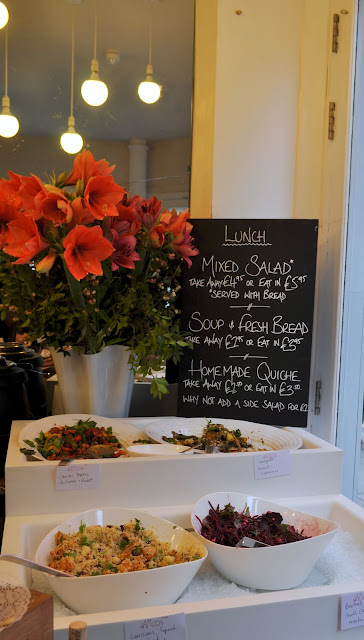 LUNCH
MIXED SALAD*
TAKE AWAY £4.95 OR EAT IN £5.95
*SERVED WITH BREAD
SOUP & FRESH BREAD
TAKE AWAY £2.95 OR EAT IN £3.95
HOMEMADE QUICHE
TAKE AWAY £2.80 OR EAT IN £3.50
WHY NOT ADD A SIDE SALAD FOR £2